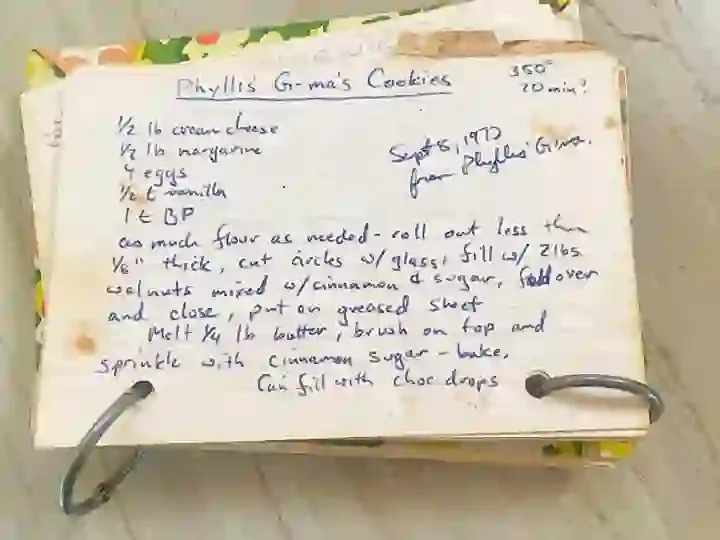 Phyllis G-ma's Cookies
350°
20 min?
1/2 lb cream cheese
1/2 lb margarine
4 eggs
1/2 t vanilla
1 t BP
Sept 5, 1972
from Phyllis' G.ma.
as much flour as needed - roll out less than
1/8" thick, cut circles w/ glass, fill w/ 2 lbs
walnuts mixed w/ cinnamon & sugar, fold over
and close, put on greased sheet
Melt 1/4 lb butter, brush on top and
sprinkle with cinnamon sugar - bake.
Can fill with choc drops